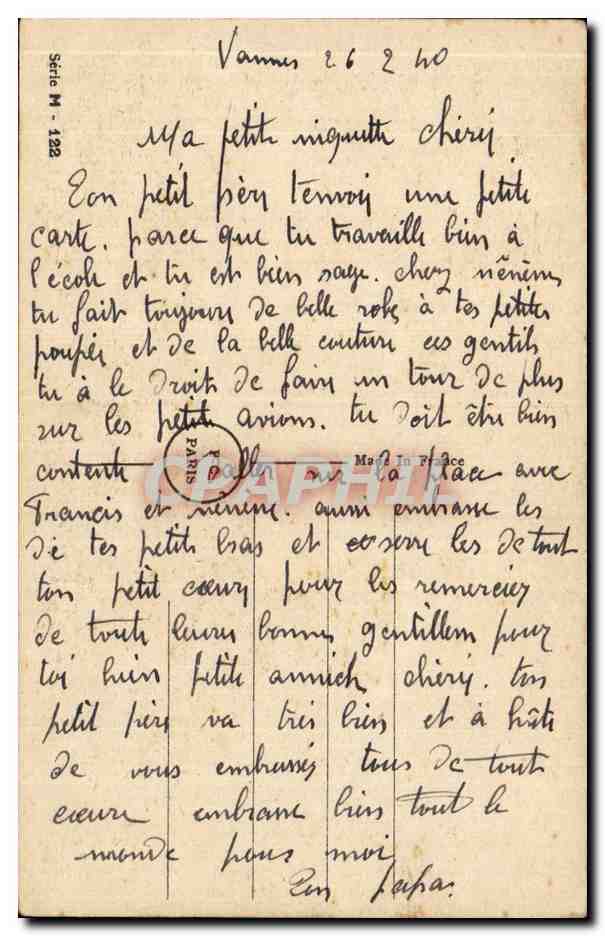 Vannes 26 2 40
Série M - 122
Ma petite niquette chéri
Ton petit pèrę t'envoi une petite
carte. parce que tu travaille bien à
l'école et tu est bien sage. chez nénène
tu fait toujours de belle robe à tes petites
poupée et de la belle couture ces gentils
tu à le droit de faire un tour de plus
sur les petit avions. tu doit être bien
contente d'aller sur la place avec
Made In France
PARIS
CPAPHIL
Francis et nénène. aussi embrasse les
dé tes petits bras et serre les de tout
ton petit cœur pour les remerciez
de toute leurs bonnes gentilless pour
toi bien petite annick chéri. ton
petit père va très bien et à hâte
de vous embrassés tous de tout
cœur embrasse bien tout le
monde pour moi
Ton papa.